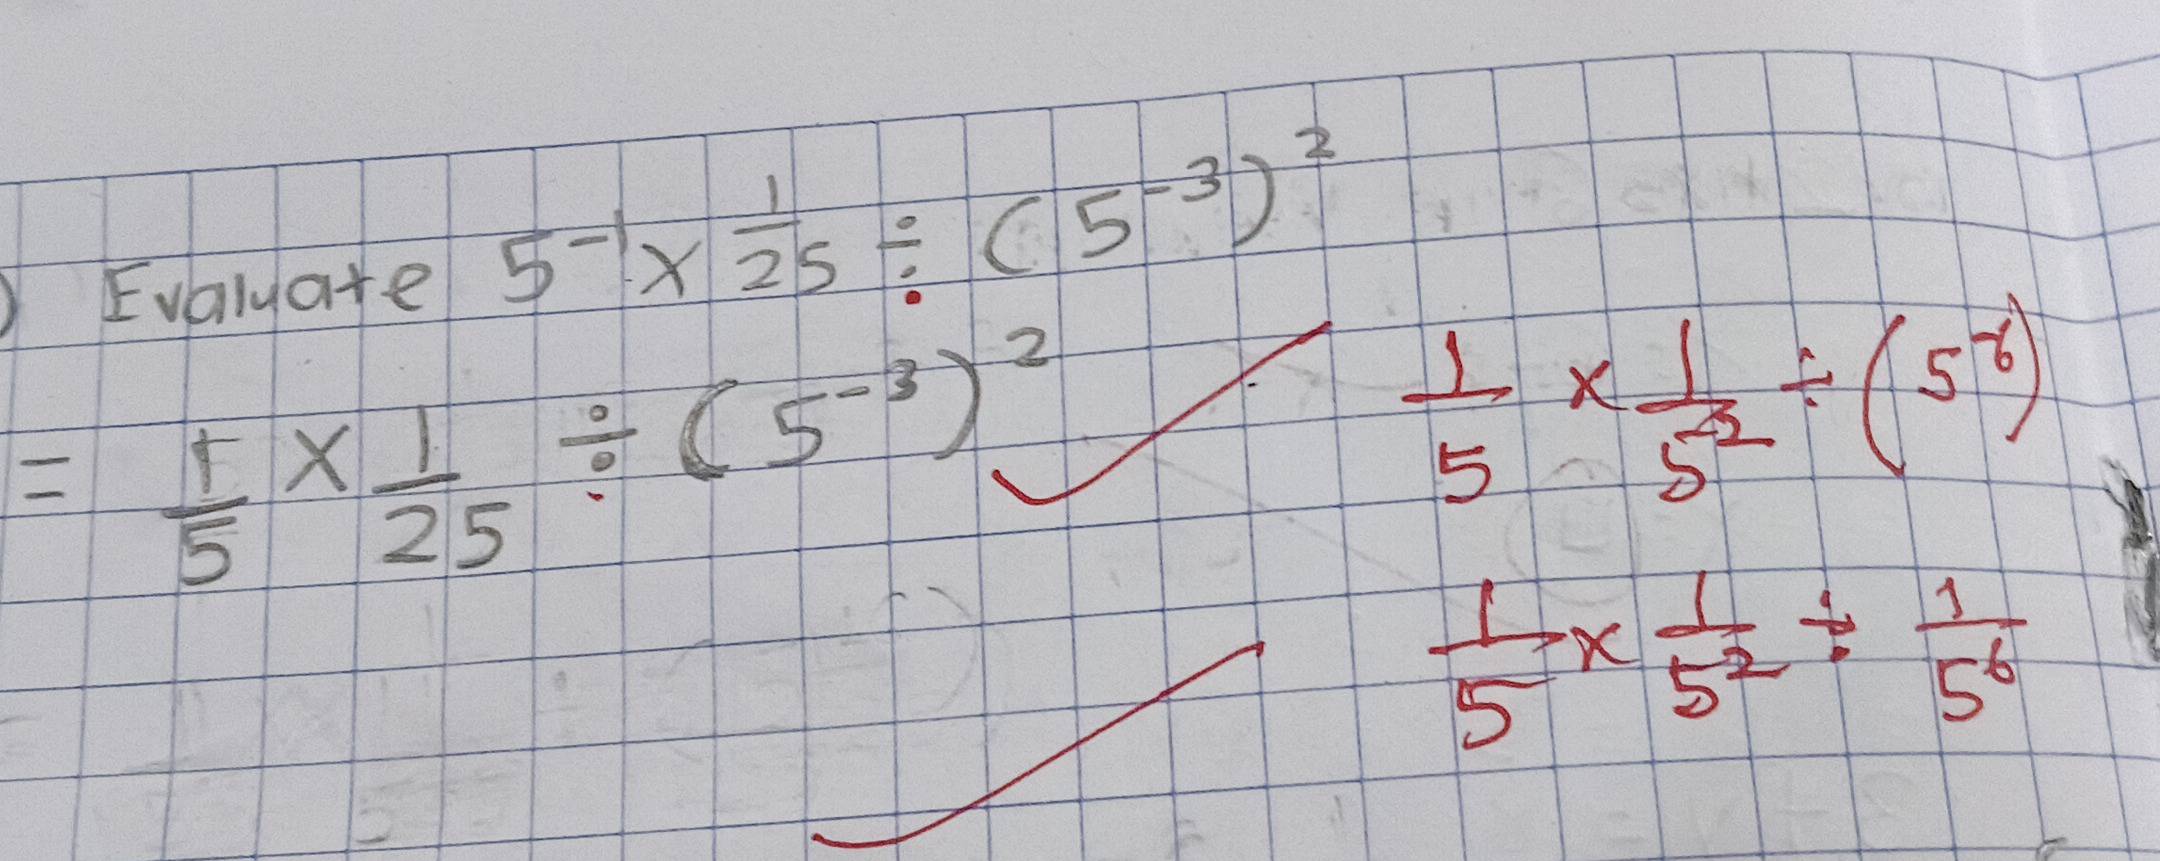 ) Evaluate 5⁻¹ × 1/25 ÷ (5⁻³)²
= 1/5 × 1/25 ÷ (5⁻³)²
1/5 × 1/5² ÷ (5⁻⁶)
1/5 × 1/5² ÷ 1/5⁶